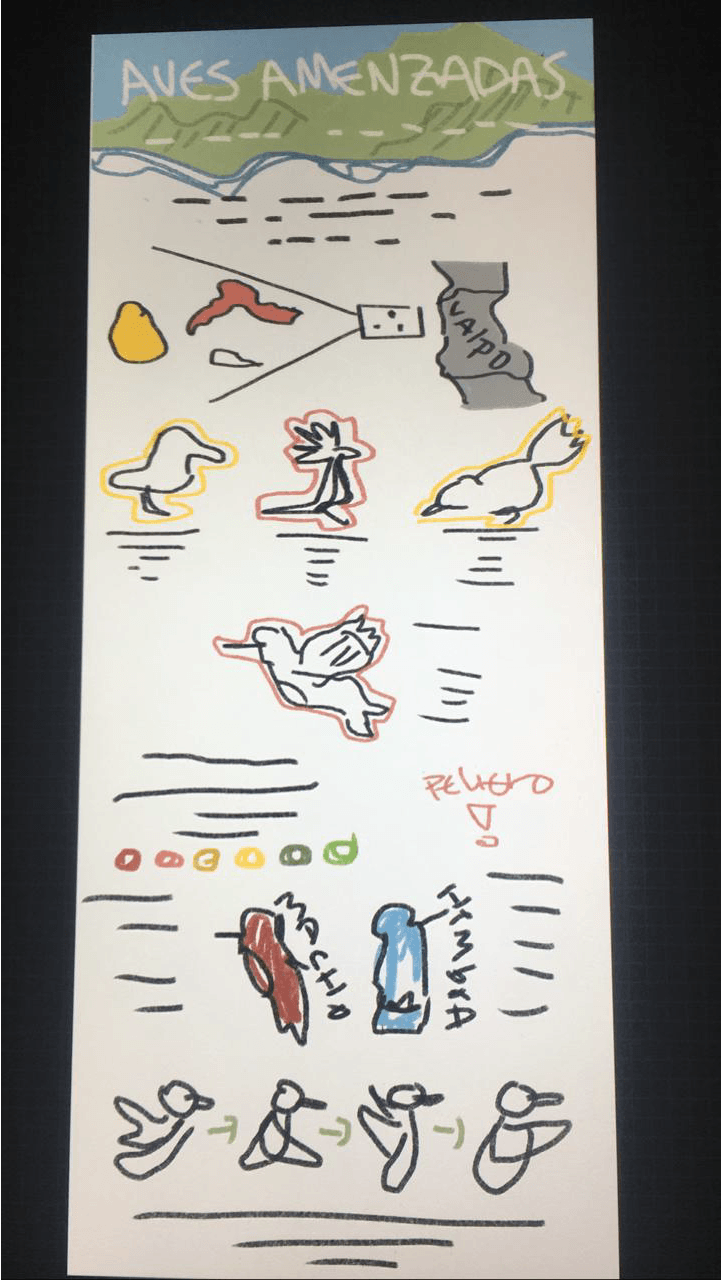 AVES AMENZADAS
VAlPO
PELIGRO
!
MACHO
HEMBRA